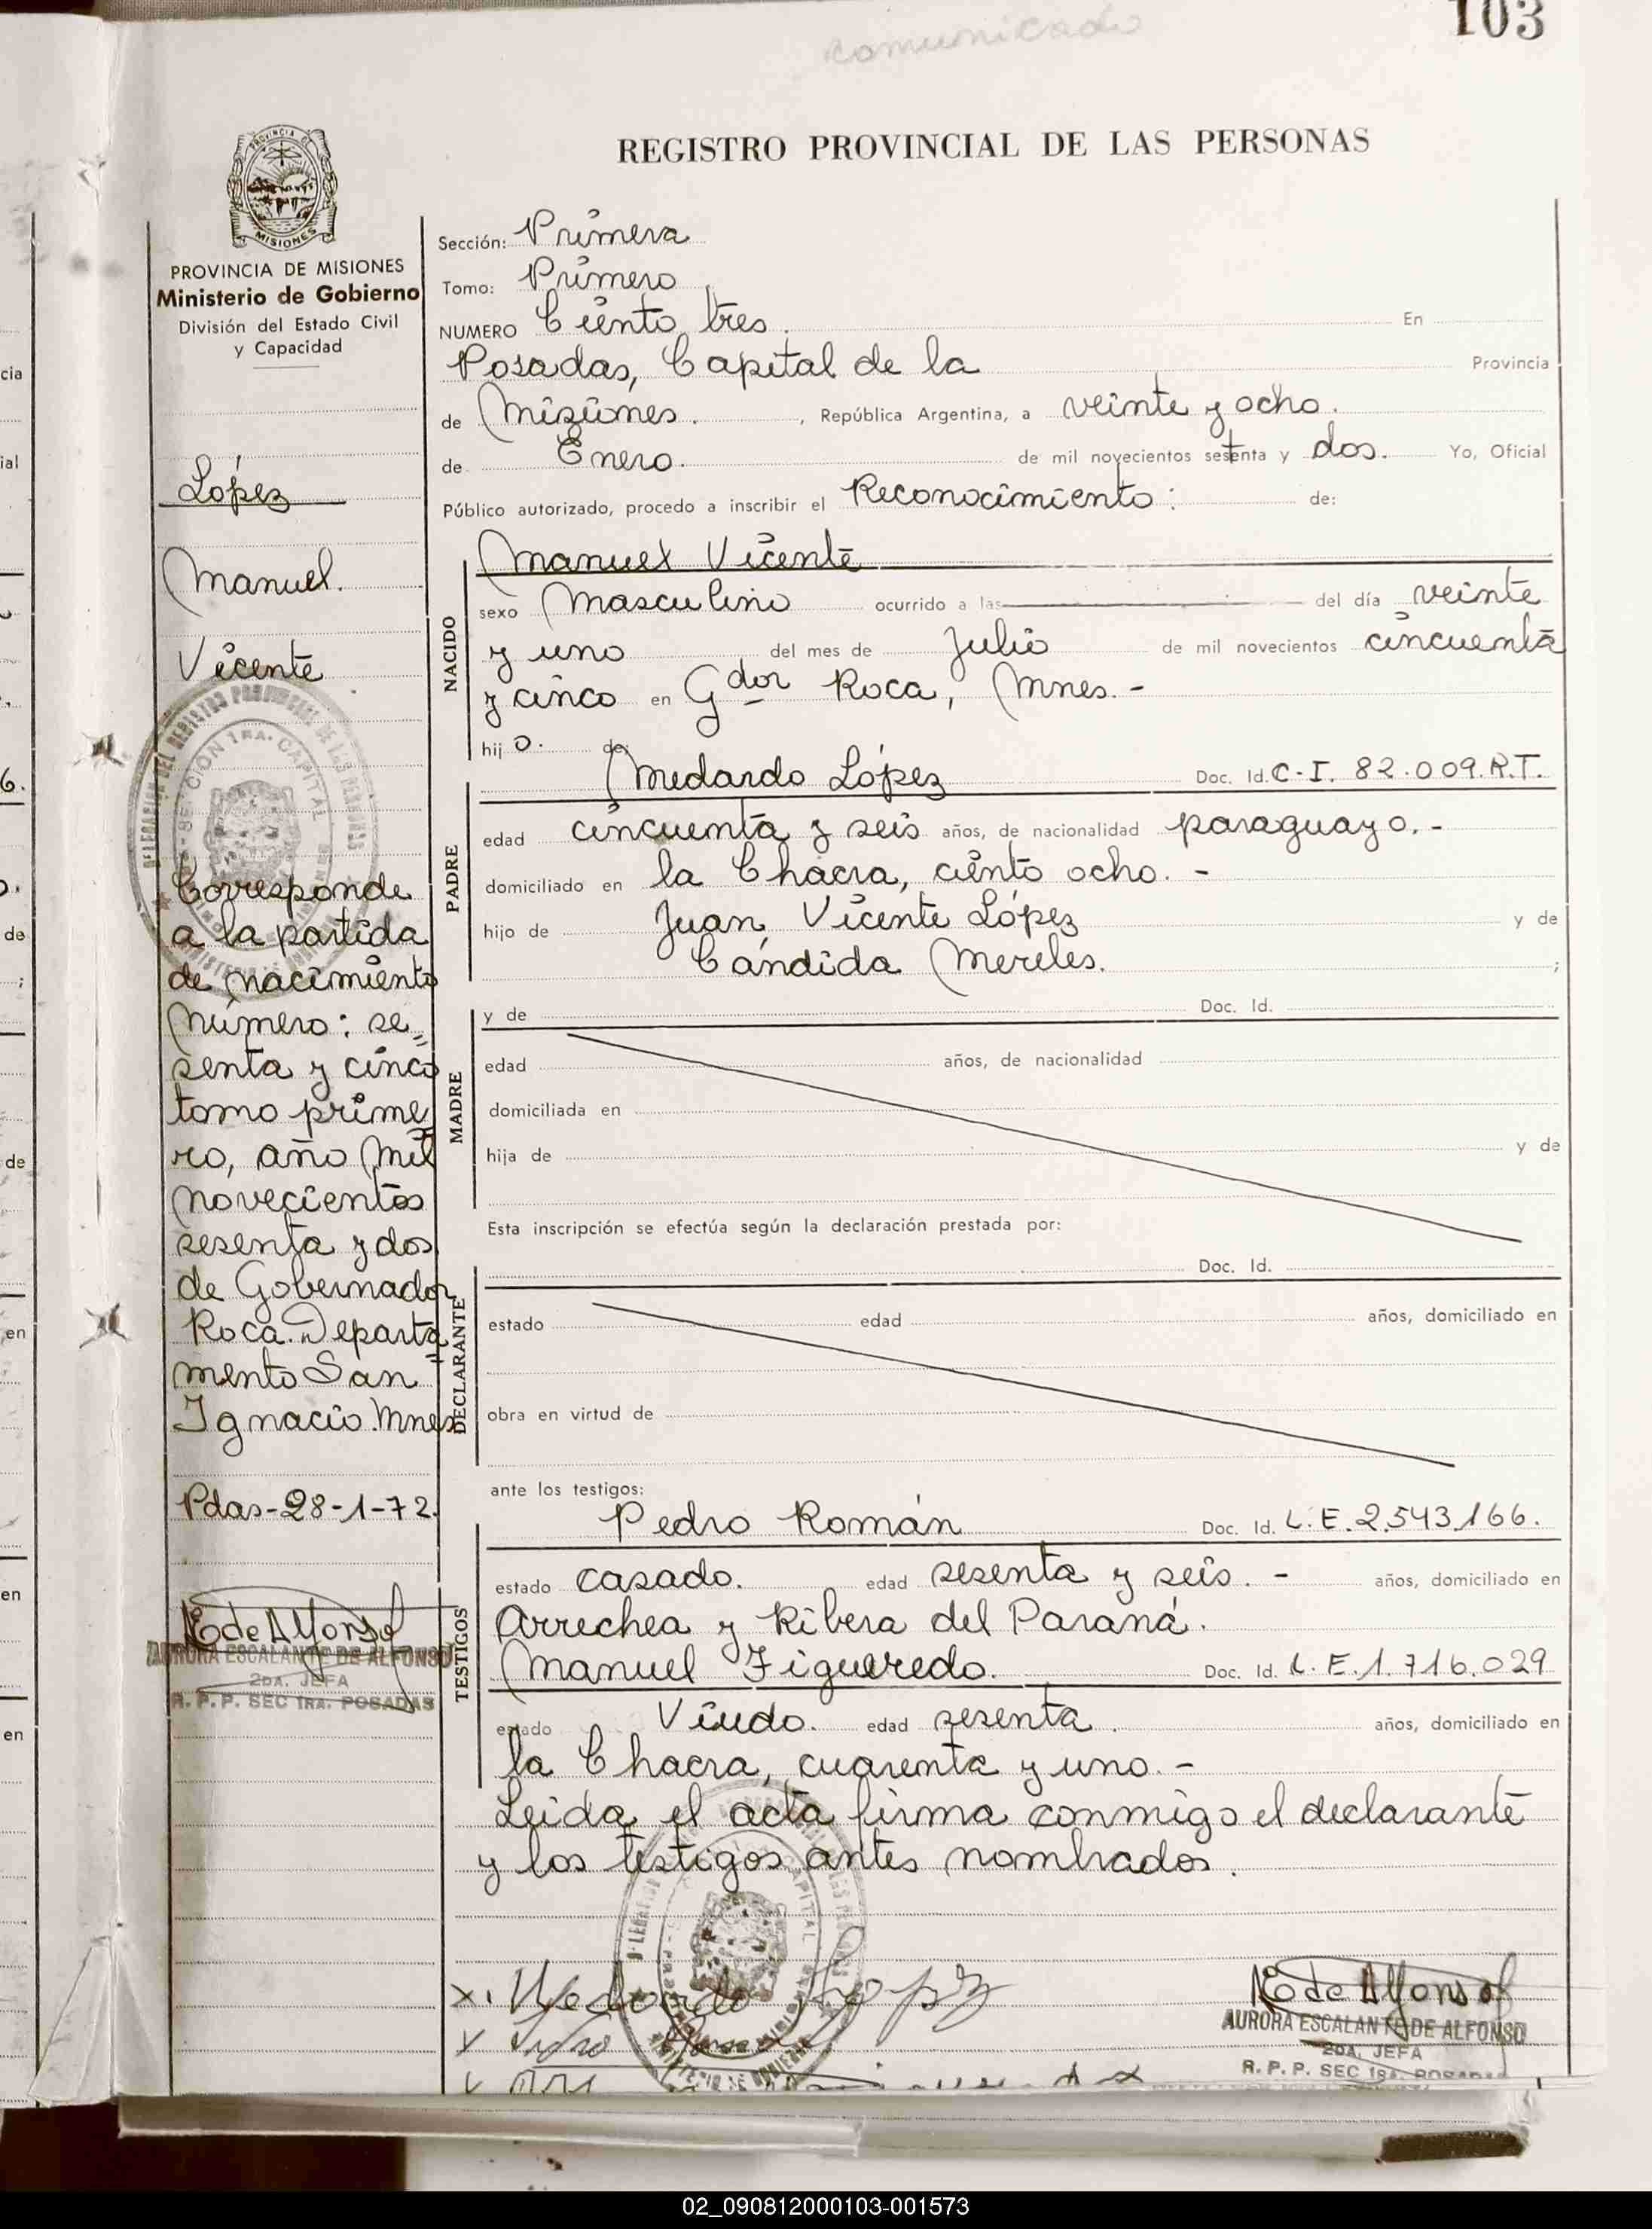 comunicado
103
PROVINCIA DE
MISIONES
REGISTRO PROVINCIAL DE LAS PERSONAS
PROVINCIA DE MISIONES
Ministerio de Gobierno
División del Estado Civil
y Capacidad
López
Manuel.
Vicente
Corresponde
a la partida
de nacimiento
Número: se„
senta y cinco
tomo prime„
ro, año mil
novecientos
sesenta y dos
de Gobernador
Roca. Departa„
mento San
Ignacio. Mnes
Pdas-28-1-72.
AURORA ESCALANTE DE ALFONSO
2DA. JEFA
R. P. P. SEC 1RA. POSADAS
Sección: Primera
Tomo: Primero
NUMERO Ciento tres. En
Posadas, Capital de la Provincia
de Misiones. , República Argentina, a veinte y ocho.
de Enero. de mil novecientos setenta y dos. Yo, Oficial
Público autorizado, procedo a inscribir el Reconocimiento: de:
NACIDO
Manuel Vicente
sexo Masculino ocurrido a las del día veinte
y uno del mes de Julio de mil novecientos cincuenta
y cinco en Gdor Roca, Mnes. -
hij o. de
PADRE
Medardo López Doc. Id. C-I. 82.009.R.T.
edad cincuenta y seis años, de nacionalidad paraguayo. -
domiciliado en la Chacra, ciento ocho. -
hijo de Juan Vicente López y de
Cándida Mereles. ;
MADRE
y de Doc. Id.
edad años, de nacionalidad
domiciliada en
hija de y de
Esta inscripción se efectúa según la declaración prestada por:
DECLARANTE
Doc. Id.
estado edad años, domiciliado en
obra en virtud de
ante los testigos:
TESTIGOS
Pedro Román Doc. Id. L.E.2.543.166.
estado casado. edad sesenta y seis. - años, domiciliado en
Arrechea y Ribera del Paraná.
Manuel Figueredo. Doc. Id. L.E.1.716.029
estado Viudo. edad sesenta. años, domiciliado en
la Chacra, cuarenta y uno. -
Leida el acta firma conmigo el declarante
y los testigos antes nombrados.
x. Medardo Lopez
E de Alfonso
AURORA ESCALANTE DE ALFONSO
2DA. JEFA
R. P. P. SEC 1RA. POSADAS
02_090812000103-001573